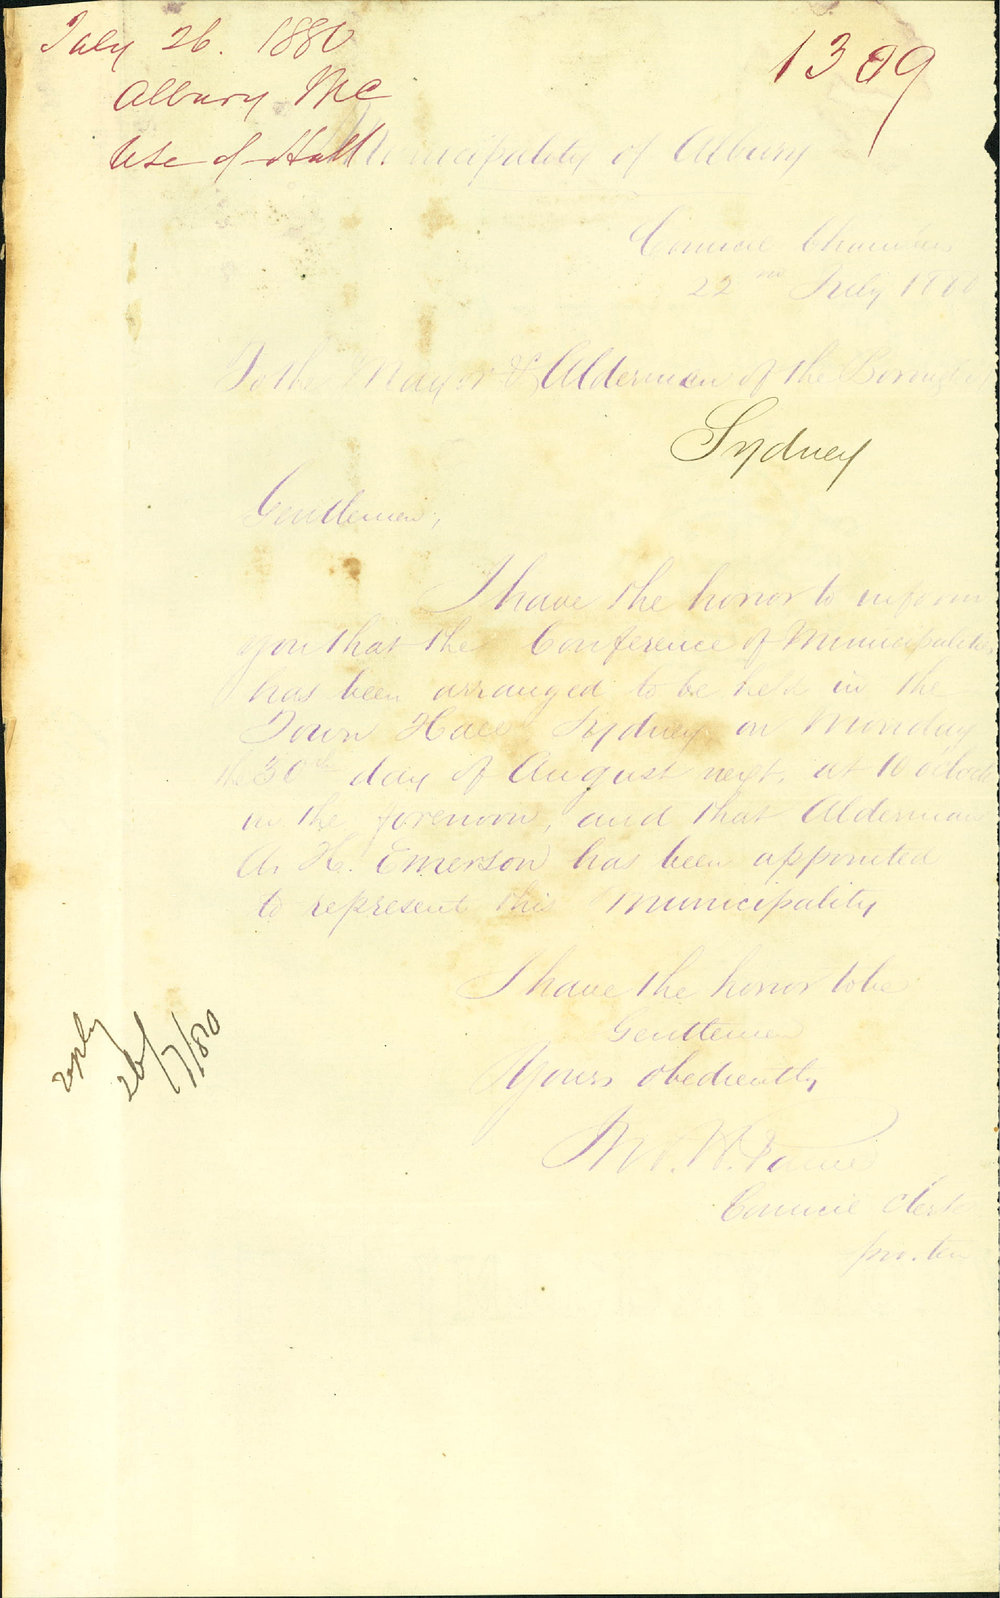 July 26. 1880
1309
Albury MC
Use of Hall
Municipality of Albury
Council Chambers
22nd July 1880
To the Mayor & Aldermen of the Borough of
Sydney
Gentlemen,
I have the honor to inform
you that the Conference of Municipalities
has been arranged to be held in the
Town Hall Sydney on Monday
the 30th day of August next, at 10 o'clock
in the forenoon, and that Alderman
A. H. Emerson has been appointed
to represent this Municipality
I have the honor to be
Gentlemen
Yours obediently
Council Clerk
pro. tem
reply
26/7/80